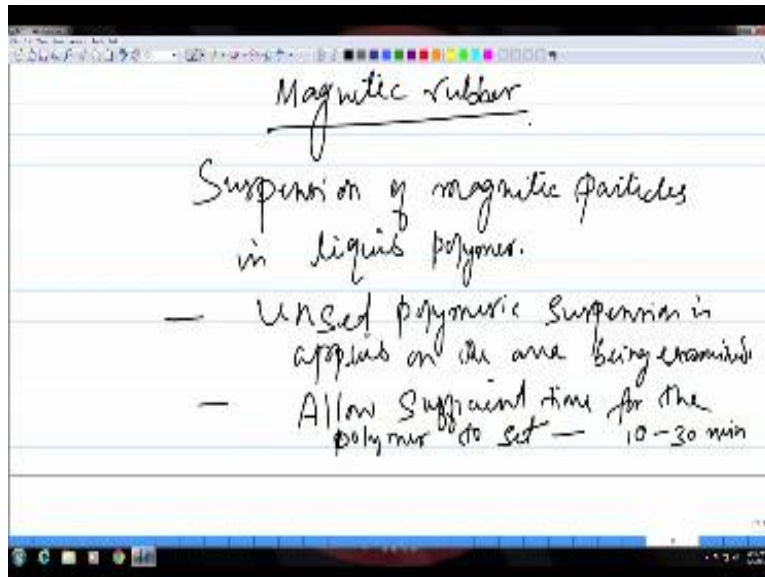 Magnetic rubber
Suspension of magnetic particles
in liquid polymer.
— Unsed polymeric suspension is
applied on the area being examined
— Allow sufficient time for the
polymer to set — 10-30 min